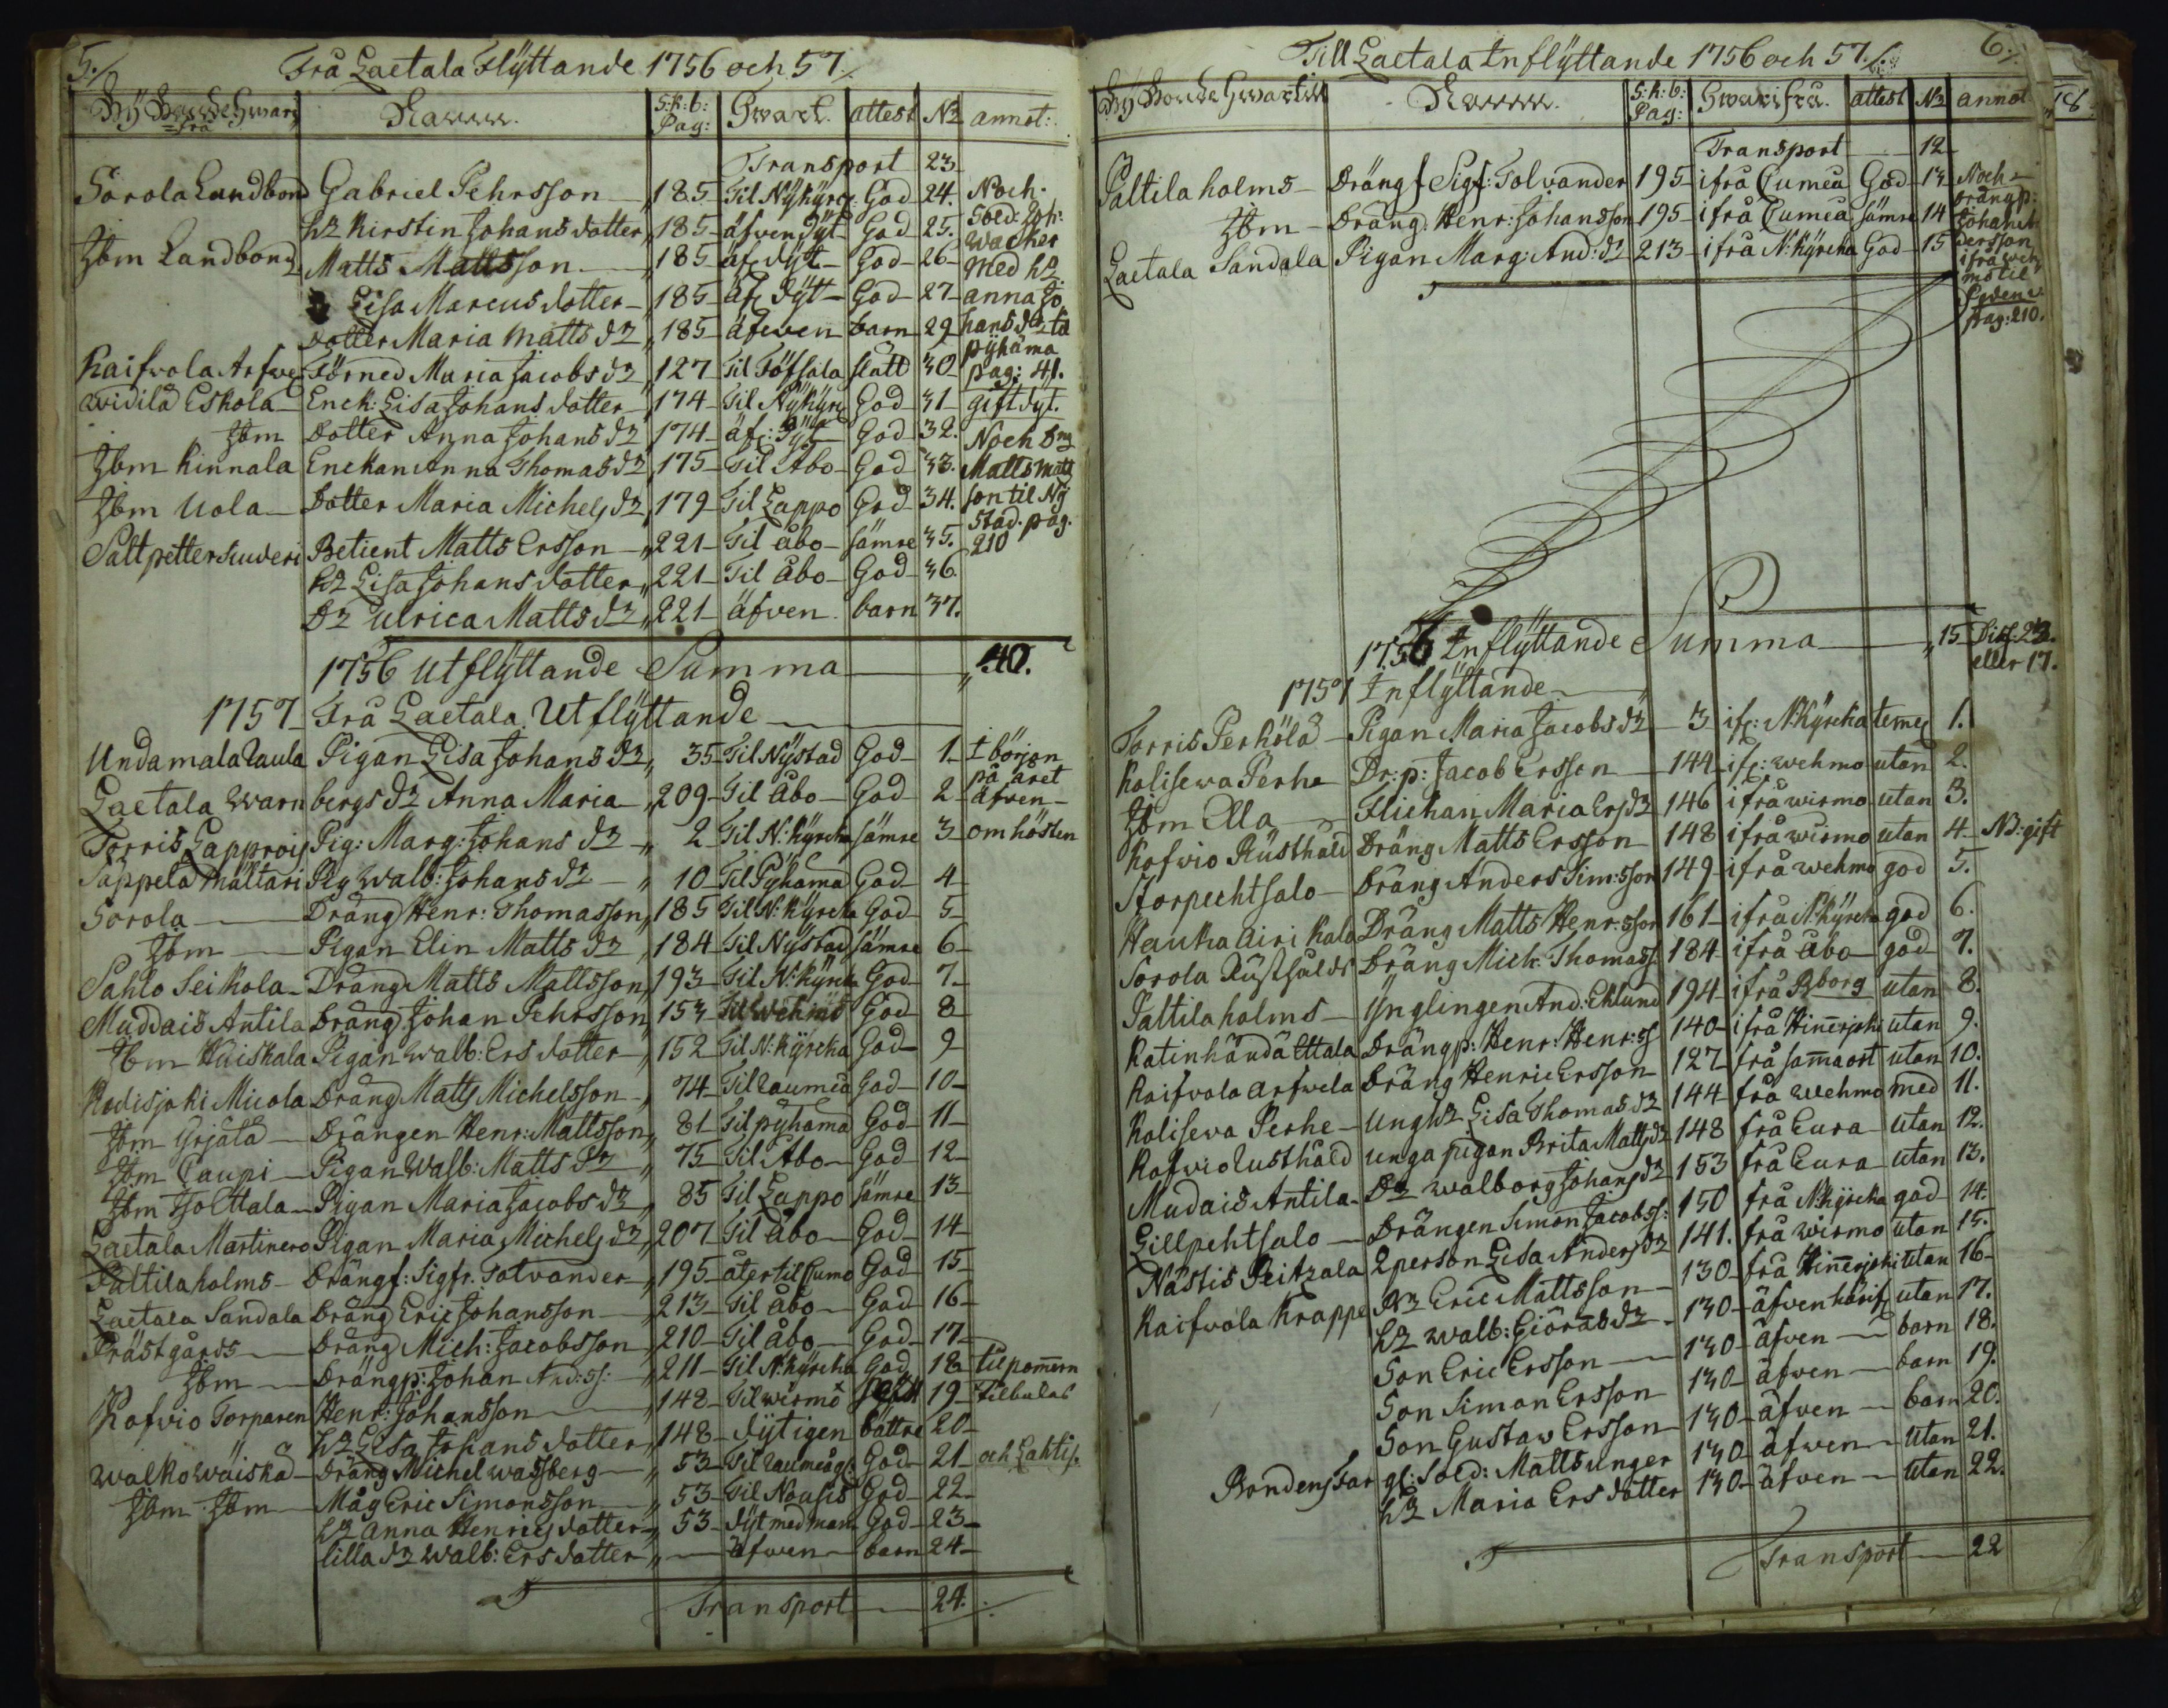 5./
Frå Laetala Flÿttande 1756 och 57./.
Bÿ Bonde Hwar
ifrå Namn. S:k:b: Pag: Hwart. attest No annot:
Transport 23
Sorola Landbond Gabriel Pehrsson 185 Til Nÿkÿrc: God 24. Noch
hr Kirstin Johans dotter 185 äfven dÿt God 25. Sold: Joh:
Jbm Landbond Matts Mattsson 185 äf: dÿt God 26 wacker med hr
Lisa Marcus dotter 185 äf: dÿtt God 27 anna Jo
dotter Maria Matts dr 185 äfwen barn 29 hans dr til
Kaifvola Arfwe Förned Maria Jacobs dr 127 Til Töfsala slätt 30 pÿhäma pag: 41.
Widilä Eskola Enck: Lisa Johans dotter 174 Til Nÿkÿrc God 31 gift dÿt.
Jbm Dotter Anna Johans dr 174 äf: Dÿt God 32. Noch
Jbm Kinnala Enckan Anna Thomas dr 175 Til Åbo God 33. Matts Matts
Jbm Uola Dotter Maria Michels dr 179 Til Lappo God 34. son til Nÿ
Saltpettersiuderi Betient Matts Ersson 221 Til åbo sämre 35. stad. pag. 210
hr Lisa Johans dotter 221 Til åbo God 36.
Dr Ulrica Matts dr 221 äfven barn 37.
1756 utflÿttande Summa 40.
1757 Frå Laetala Utflÿttande
Undamala Laula Pigan Lisa Johans dr 35 Til Nÿstad God 1 I börjon
Laetala Warn bergs dr Anna Maria 209 Til åbo God 2 på året äfven
Torris Lapprois Pig: Marg: Johans dr 2 Til N:kÿrcka sämre 3 om hösten
Sappela Mältäri Pig Walb: Johans dr 10 Til Pÿhäma God 4
Sorola Dräng Henr: Thomasson 185 Til N:kÿrcka God 5
Jbm Pigan Elin Matts dr 184 Til Nÿstad sämre 6
Sahlo Seikola Dräng Matts Mattsson 193 Til N:kÿrcka God 7
Muddais Antila Dräng Johan Pehrsson 153 Til wehmo God 8
Jbm Huiskala Pigan Walb: Ers dotter 152 Til N:kÿrcka God 9
Kodisjoki Micola Dräng Matts Michelsson 74 Til Raumå God 10
Jbm Grjälä Drängen Henr: Mattsson 81 Til pÿhämä God 11
Jbm Caupi Pigan Walb: Matts dr 75 Til Åbo God 12
Jbm Iso Ettala Pigan Maria Jacobs dr 85 Til Lappo sämre 13
Laetala Martinero Pigan Maria Michels dr 207 Til åbo God 14
Paltila holms Drängf: Sigfr. Tolvander 195 åter til Cumo God 15
Laetala Sandala Dräng Eric Johansson 213 Til åbo God 16
Prästgårds Dräng Mich: Jacobsson 210 Til åbo God 17
Jbm Drängp: Johan And:ss: 211 Til N:kÿrcka God 18 til pomern
Kofvio Torparen Henr: Johansson 148 Til wirmo 19
hr Lisa Johans dotter 148 dÿt igen bättre 20
Walko Wäiskä Dräng Michel Wassberg 53 God 21 och Lahtis.
Jbm Jbm Måg Eric Simonsson 53 Til Nousis God 22
hr Anna Henrics dotter 53 dÿt med man God 23
lilla dr Walb: Ers dotter äfwen barn 24
Transport 24.
6./
Till Laetala Inflÿttande 1756 och 57./.
Bÿ Bonde Hwartill Namn. S:k:b: Pag: Hwarifrå. attest No annot.
Transport 12
Paltila holms Drängf Sigf: Tolvander 195 ifrå Cumeå God 13 Noch
Jbm Dräng: Henr: Johansson 195 ifrå Cumeå sämre 14 drängp:
Laetala Sandala Pigan Marg: And: dr 213 ifrå N:kÿrcka God 15
pag: 210.
1756 Inflÿttande Summa 15
eller 17.
1757 Inflÿttande
Torris Perhölä Pigan Maria Jacobs dr 3 if: N:Kÿrcka 1.
Kolisewa Perhe Dr:p: Jacob Ersson 144 if: wehmo utan 2.
Jbm Ella Flickan Maria Ers dr 146 ifrå wirmo utan 3.
Kofvio Rüsthåld Dräng Matts Ersson 148 ifrå wirmo utan 4 NB: gift
Storpechtsalo Dräng Anders Sim:sson 149 ifrå wehmo god 5.
Hauka Airikala Dräng Matts Henr:sson 161 ifrå N:kÿrcka god 6.
Sorola Rüsthålds Dräng Mich: Thomass: 184 ifrå åbo god 7.
Paltila holms Ÿnglingen And: Eklund 194 ifrå Bborg utan 8.
Katinhändä Ettala Drängp: Henr: Henr:ss 140 ifrå Hinerjoki utan 9.
Kaifvola Arfwela Dräng Henric Ersson 127 frå samma ort utan 10.
Kolisewa Perhe Ung hr Lisa Thomas dr 144 frå wehmo med 11.
Kofvio Rusthåld Unga pigan Brita Matts dr 148 frå Eura utan 12.
Mudais Antila Dr Walborg Johans dr 153 frå Eura utan 13.
Lillpehtsalo Drängen Simon Jacobss: 150 frå N:kÿrcka god 14.
Nästis Peitzala 2 person Lisa Anders dr 141. frå wirmo utan 15.
Kaifwola Krappe Nr Eric Mattsson 130 frå Hinerjoki utan 16
hr Walb: Giörans dr 130 äfven utan 17.
Son Eric Ersson 130 äfven barn 18.
Son Simon Ersson 130 äfven barn 19.
Son Gustaw Ersson 130 äfven barn 20.
Bondens far gl: Sold: Matts unger 130 äfwen utan 21.
hr Maria Ers dotter 130 äfwen utan 22.
Transport 22